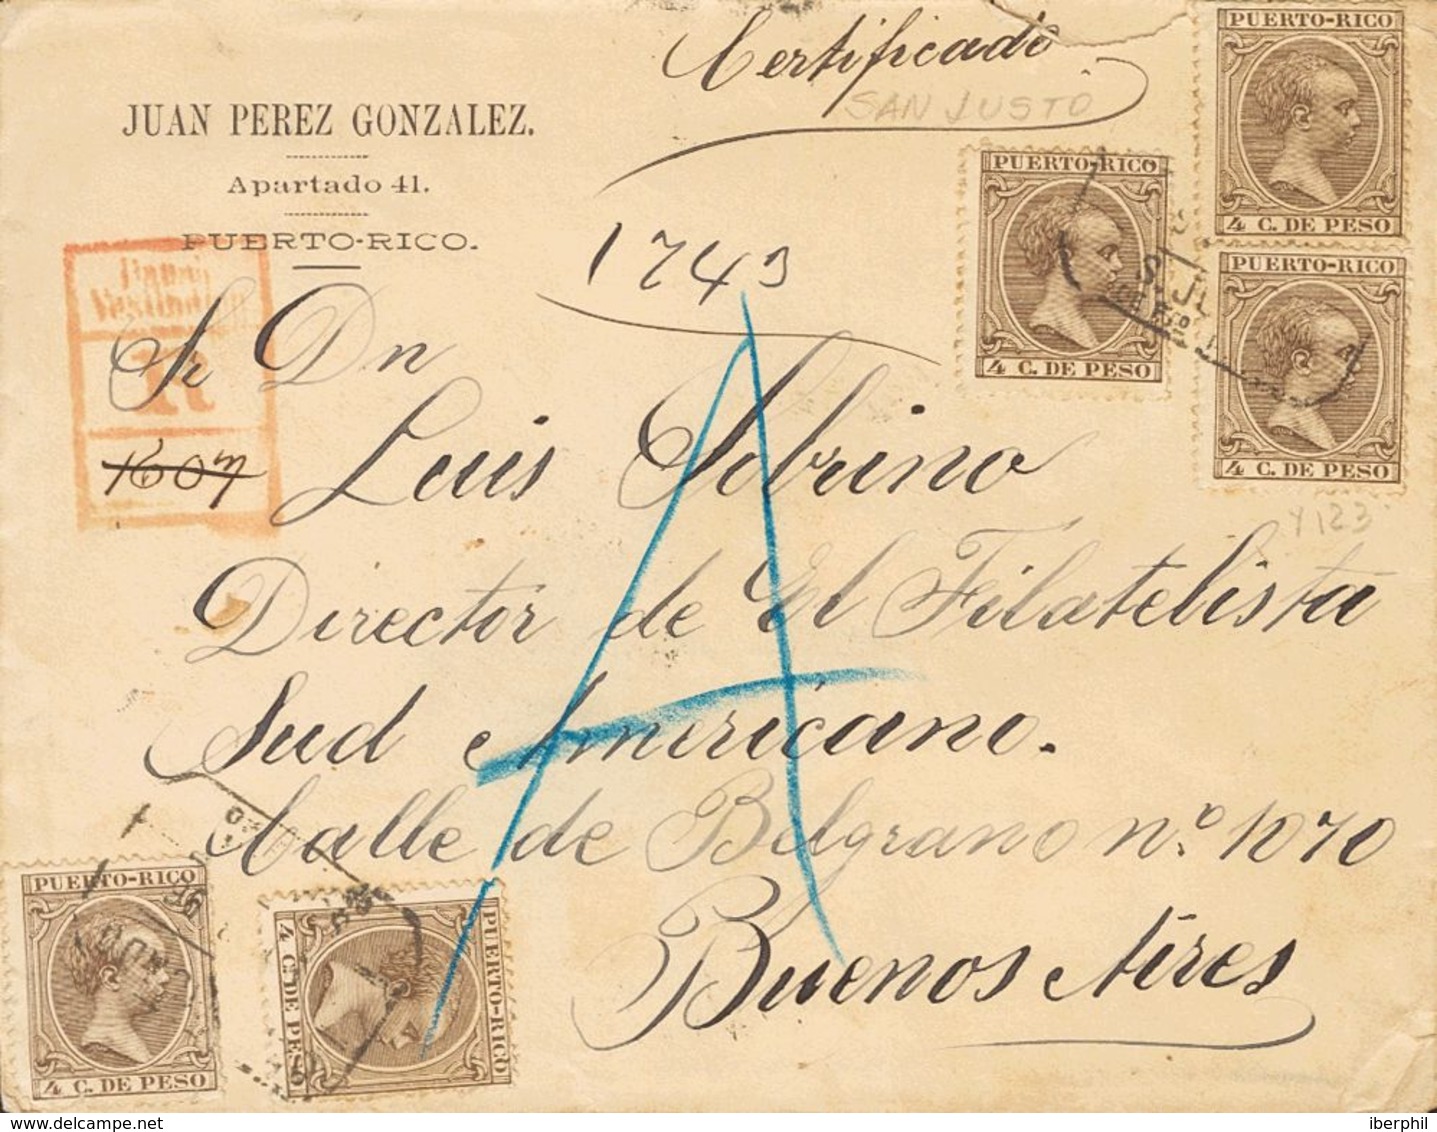 Certificado
SAN JUSTO
JUAN PEREZ GONZALEZ.
Apartado 41.
PUERTO-RICO.
PUERTO-RICO
4 C. DE PESO
PUERTO-RICO
4 C. DE PESO
PUERTO-RICO
4 C. DE PESO
1743
R
1607
Y123
A
Sr Dn
Luis Sobrino
Director de El Filatelista
Sud Americano.
Calle de Belgrano nº 1070
Buenos Aires
PUERTO-RICO
4 C. DE PESO
PUERTO-RICO
4 C. DE PESO
iberphil